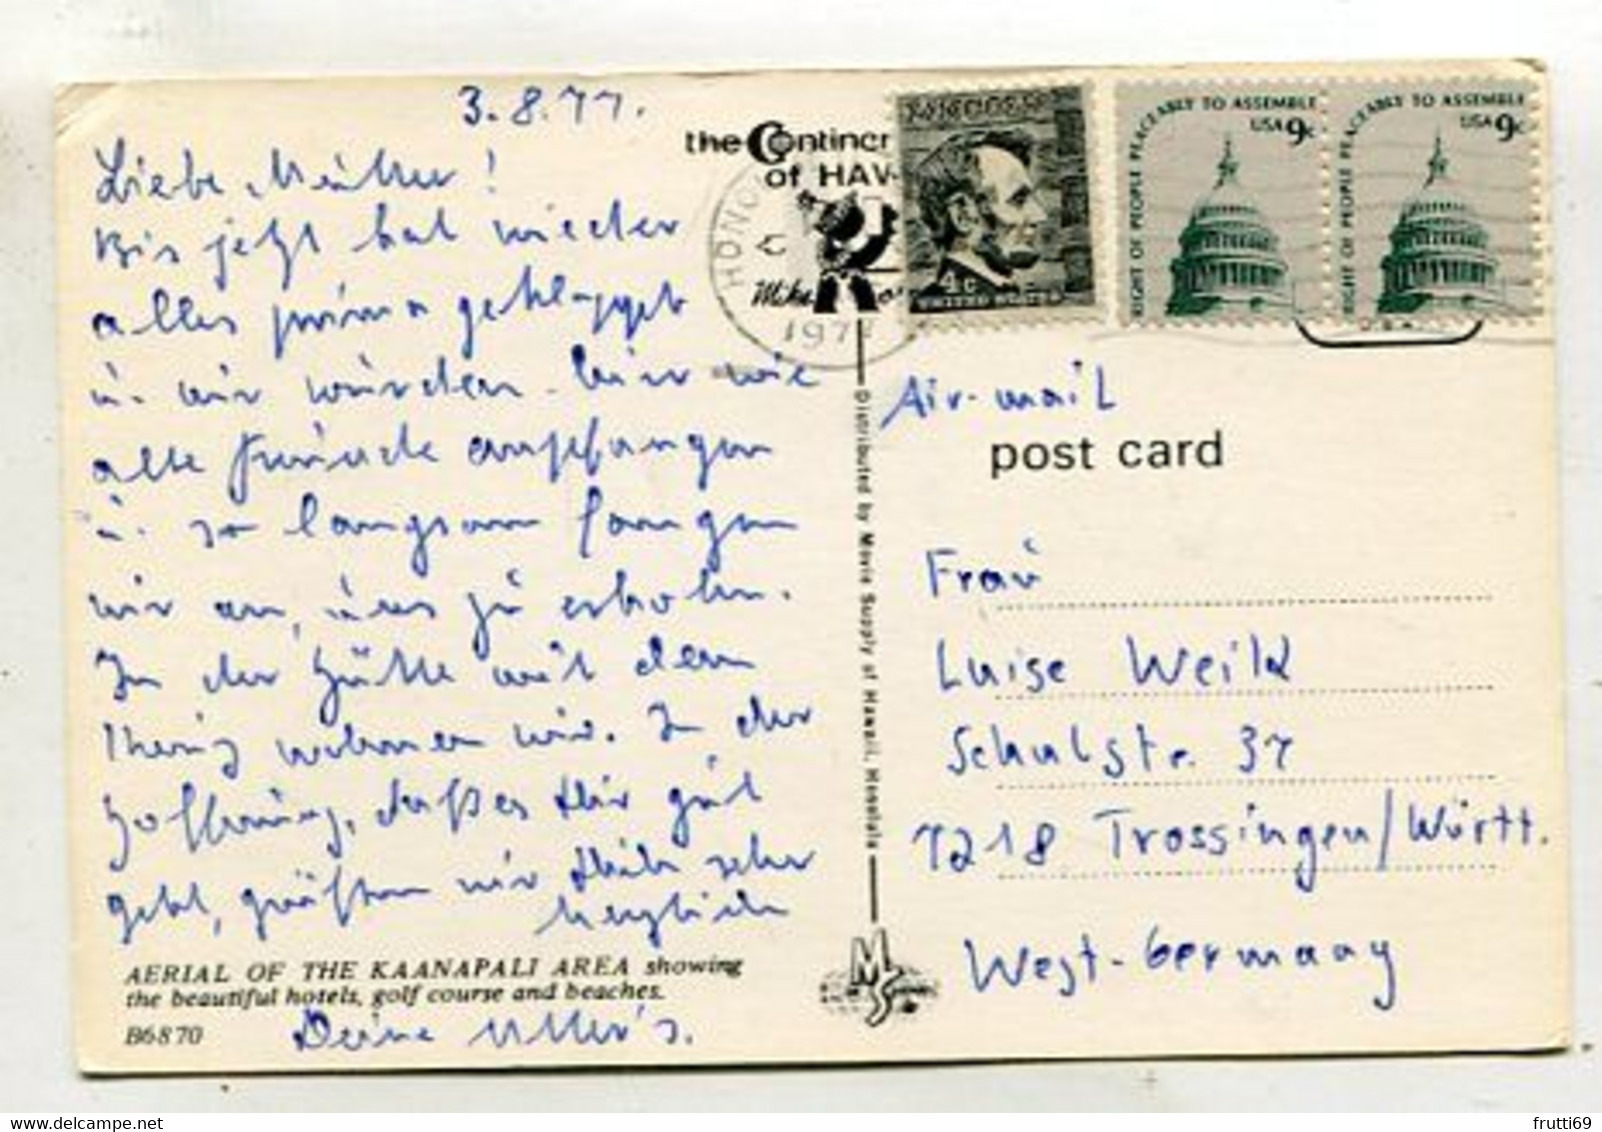 3.8.77.
Liebe Mutter!
Bis jetzt hat wieder
alles prima geklappt
u. wir würden hier wie
alte Freunde empfangen
u. so langsam fangen
wir an, uns zu erholen.
In der Hütte mit dem
wohnen wir. In der
Hoffnung, daß es Dir gut
geht, grüßen wir Dich sehr
herzlich
Deine
AERIAL OF THE KAANAPALI AREA showing
the beautiful hotels, golf course and beaches.
B6870
the Contin
of HAW
HONO
Mike
197
4c
UNITED STATES
RIGHT OF PEOPLE PEACEABLY TO ASSEMBLE
USA 9c
RIGHT OF PEOPLE PEACEABLY TO ASSEMBLE
USA 9c
Distributed by Movie Supply of Hawaii, Honolulu
MS
Air-mail
post card
Frau
Luise Weild
Schulstr. 37
7218 Trossingen/Württ.
West-Germany
frutti69